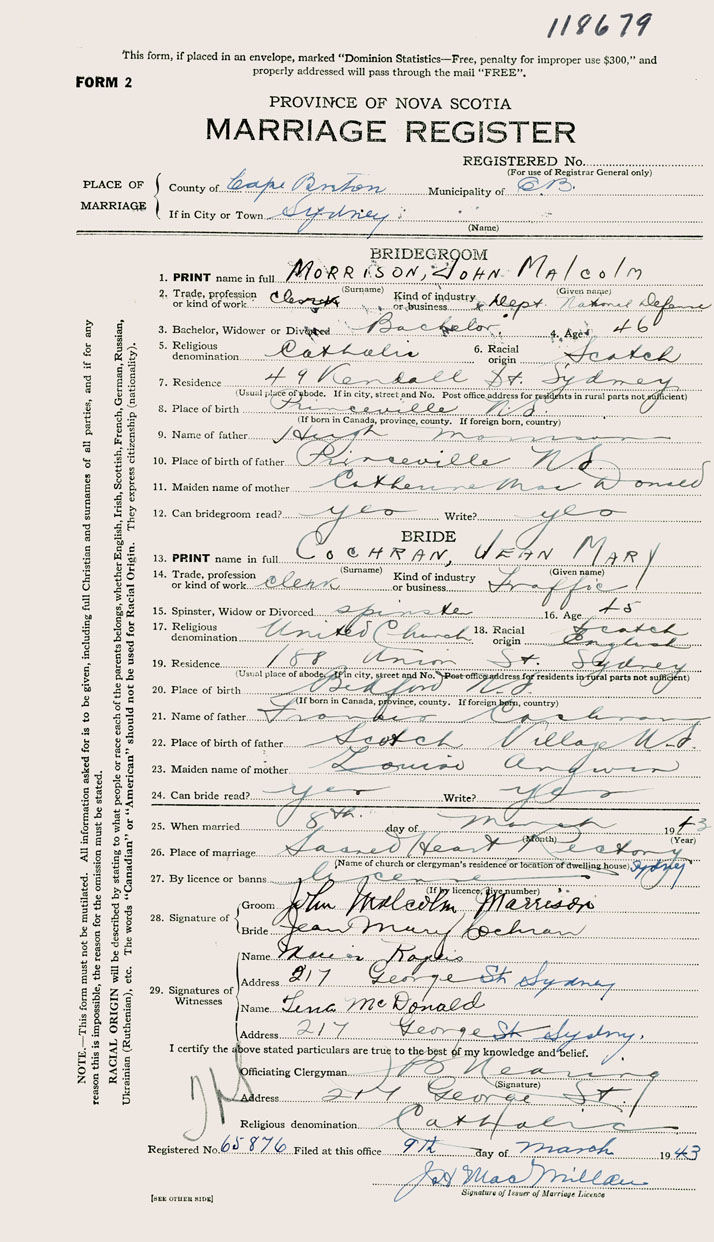 118679
This form, if placed in an envelope, marked "Dominion Statistics—Free, penalty for improper use $300," and
properly addressed will pass through the mail "FREE".
FORM 2
PROVINCE OF NOVA SCOTIA
MARRIAGE REGISTER
REGISTERED No.
(For use of Registrar General only)
PLACE OF MARRIAGE
County of Cape Breton Municipality of C.B.
If in City or Town Sydney
(Name)
BRIDEGROOM
1. PRINT name in full MORRISON, JOHN MALCOLM
(Surname) (Given name)
2. Trade, profession or kind of work Clerk Kind of industry or business Dept. National Defense
3. Bachelor, Widower or Divorced Bachelor 4. Age 46
5. Religious denomination Catholic 6. Racial origin Scotch
7. Residence 49 Kendall St. Sydney
(Usual place of abode. If in city, street and No. Post office address for residents in rural parts not sufficient)
8. Place of birth Princeville N.S.
(If born in Canada, province, county. If foreign born, country)
9. Name of father Hugh Morrison
10. Place of birth of father Princeville N.S.
11. Maiden name of mother Catherine MacDonald
12. Can bridegroom read? yes Write? yes
BRIDE
13. PRINT name in full COCHRAN, JEAN MARY
(Surname) (Given name)
14. Trade, profession or kind of work clerk Kind of industry or business Traffic
15. Spinster, Widow or Divorced spinster 16. Age 45
17. Religious denomination United Church 18. Racial origin Scotch English
19. Residence 188 Union St. Sydney
(Usual place of abode. If in city, street and No. Post office address for residents in rural parts not sufficient)
20. Place of birth Bedford N.S.
(If born in Canada, province, county. If foreign born, country)
21. Name of father Francis Cochran
22. Place of birth of father Scotch Village N.S.
23. Maiden name of mother Louise Angwin
24. Can bride read? yes Write? yes
25. When married 8th. day of March 1943
(Month) (Year)
26. Place of marriage Sacred Heart Rectory Sydney
(Name of church or clergyman's residence or location of dwelling house)
27. By licence or banns licence
(If by licence, give number)
28. Signature of
Groom John Malcolm Morrison
Bride Jean Mary Cochran
29. Signatures of Witnesses
Name
Address 217 George St Sydney
Name Lena McDonald
Address 217 George St Sydney.
I certify the above stated particulars are true to the best of my knowledge and belief.
Officiating Clergyman Nearing
(Signature)
Address 217 George St.
Religious denomination Catholic
Registered No. 65876 Filed at this office 9th day of March 1943
MacMillan
Signature of Issuer of Marriage Licence
[SEE OTHER SIDE]
NOTE.—This form must not be mutilated. All information asked for is to be given, including full Christian and surnames of all parties, and if for any
reason this is impossible, the reason for the omission must be stated.
RACIAL ORIGIN will be described by stating to what people or race each of the parents belongs, whether English, Irish, Scottish, French, German, Russian,
Ukrainian (Ruthenian), etc. The words "Canadian" or "American" should not be used for Racial Origin. They express citizenship (nationality).